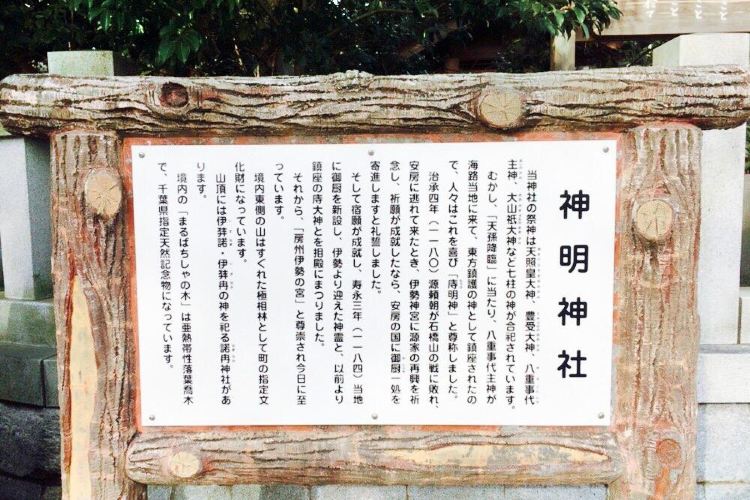 神明神社
当神社の祭神は天照皇大神、豊受大神、八重事代
主神、大山祇大神など七柱の神が合祀されています。
むかし、「天孫降臨」に当たり、八重事代主神が
海路当地に来て、東方鎮護の神として鎮座されたの
で、人々はこれを喜び「庤明神」と尊称しました。
治承四年（一一八〇）源頼朝が石橋山の戦に敗れ、
安房に逃れて来たとき、伊勢神宮に源家の再興を祈
念し、祈願が成就したなら、安房の国に御厨一処を
寄進しますと礼誓しました。
そして宿願が成就し、寿永三年（一一八四）当地
に御厨を新設し、伊勢より迎えた神霊と、以前より
鎮座の庤大神とを相殿にまつりました。
それから、「房州伊勢の宮」と尊崇され今日に至
っています。
境内東側の山はすぐれた極相林として町の指定文
化財になっています。
山頂には伊弉諾・伊弉冉の神を祀る諾冉神社があ
ります。
境内の「まるばちしゃの木」は亜熱帯性落葉喬木
で、千葉県指定天然記念物になっています。